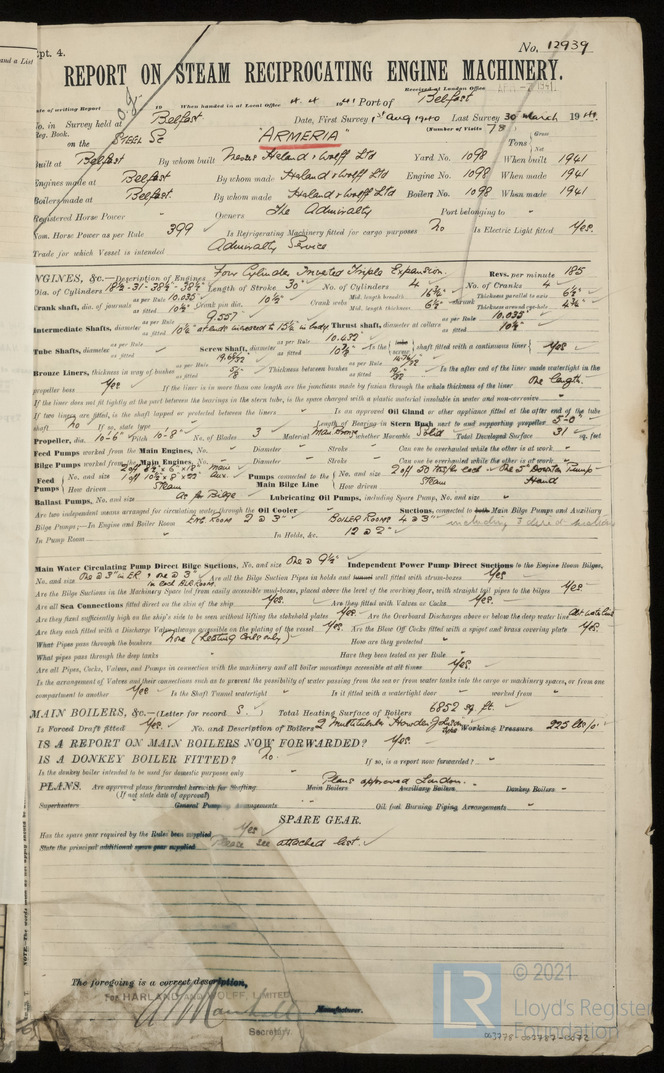 pt. 4.
No. 12939
REPORT ON STEAM RECIPROCATING ENGINE MACHINERY.
Received at London Office
Date of writing Report 19 When handed in at Local Office 4. 4. 1941 Port of Belfast
No. in Survey held at Belfast Date, First Survey 1st Aug 1940 Last Survey 30 March 1941
Reg. Book. (Number of Visits 78)
on the STEEL Sc "ARMERIA" Tons Gross Net
Built at Belfast By whom built Messrs Harland & Wolff Ltd Yard No. 1098 When built 1941
Engines made at Belfast By whom made Harland & Wolff Ltd Engine No. 1098 When made 1941
Boilers made at Belfast. By whom made Harland & Wolff Ltd Boiler No. 1098 When made 1941
Registered Horse Power Owners The Admiralty Port belonging to
Nom. Horse Power as per Rule 399 Is Refrigerating Machinery fitted for cargo purposes No Is Electric Light fitted Yes.
Trade for which Vessel is intended Admiralty Service
ENGINES, &c.—Description of Engines Four Cylinder Inverted Triple Expansion. Revs. per minute 185
Dia. of Cylinders 18½-31-38½-38½ Length of Stroke 30" No. of Cylinders 4 No. of Cranks 4
Crank shaft, dia. of journals as per Rule 10.035" as fitted 10¼" Crank pin dia. 10½" Crank webs Mid. length breadth 16¾" Mid. length thickness 6¼" shrunk Thickness parallel to axis 6¼" Thickness around eye-hole
Intermediate Shafts, diameter as per Rule 9.557" as fitted Thrust shaft, diameter at collars as per Rule 10.035" as fitted 10¼"
Tube Shafts, diameter as per Rule as fitted Screw Shaft, diameter as per Rule 10.432" as fitted Is the tube screw shaft fitted with a continuous liner Yes
Bronze Liners, thickness in way of bushes as per Rule as fitted Thickness between bushes as per Rule as fitted Is the after end of the liner made watertight in the
propeller boss Yes If the liner is in more than one length are the junctions made by fusion through the whole thickness of the liner One length.
If the liner does not fit tightly at the part between the bearings in the stern tube, is the space charged with a plastic material insoluble in water and non-corrosive
If two liners are fitted, is the shaft lapped or protected between the liners Is an approved Oil Gland or other appliance fitted at the after end of the tube
shaft No If so, state type Length of Bearing in Stern Bush next to and supporting propeller 5'-0"
Propeller, dia. 10'-6" Pitch 10'-8" No. of Blades 3 Material Man. Bronze whether Moveable Solid Total Developed Surface 31 sq. feet
Feed Pumps worked from the Main Engines, No. Diameter Stroke Can one be overhauled while the other is at work
Bilge Pumps worked from the Main Engines, No. Diameter Stroke Can one be overhauled while the other is at work
Feed Pumps No. and size main aux. How driven Steam Pumps connected to the Main Bilge Line No. and size 2 off 50 tons/hr each One 5" Downton Pump How driven Steam Hand
Ballast Pumps, No. and size As for Bilge Lubricating Oil Pumps, including Spare Pump, No. and size
Are two independent means arranged for circulating water through the Oil Cooler Suctions, connected to both Main Bilge Pumps and Auxiliary
Bilge Pumps;—In Engine and Boiler Room Eng. Room 2 @ 3" Boiler Rooms 4 @ 3"
In Pump Room In Holds, &c. 12 @ 2"
Main Water Circulating Pump Direct Bilge Suctions, No. and size One @ 9½" Independent Power Pump Direct Suctions to the Engine Room Bilges,
No. and size One @ 3" in ER & one @ 3" in each Blr Room. Are all the Bilge Suction Pipes in holds and tunnel well fitted with strum-boxes Yes.
Are the Bilge Suctions in the Machinery Space led from easily accessible mud-boxes, placed above the level of the working floor, with straight tail pipes to the bilges Yes.
Are all Sea Connections fitted direct on the skin of the ship Yes. Are they fitted with Valves or Cocks Yes.
Are they fixed sufficiently high on the ship's side to be seen without lifting the stokehold plates Yes. Are the Overboard Discharges above or below the deep water line At water line
Are they each fitted with a Discharge Valve always accessible on the plating of the vessel Yes. Are the Blow Off Cocks fitted with a spigot and brass covering plate Yes.
What Pipes pass through the bunkers None (Heating Coils only) How are they protected
What pipes pass through the deep tanks Have they been tested as per Rule
Are all Pipes, Cocks, Valves, and Pumps in connection with the machinery and all boiler mountings accessible at all times Yes.
Is the arrangement of Valves and their connections such as to prevent the possibility of water passing from the sea or from water tanks into the cargo or machinery spaces, or from one
compartment to another Yes Is the Shaft Tunnel watertight Is it fitted with a watertight door worked from
MAIN BOILERS, &c.—(Letter for record S.) Total Heating Surface of Boilers 6852 sq. ft.
Is Forced Draft fitted Yes. No. and Description of Boilers 2 Multitubular Howden Johnson type Working Pressure 225 lbs/□"
IS A REPORT ON MAIN BOILERS NOW FORWARDED? Yes.
IS A DONKEY BOILER FITTED? No. If so, is a report now forwarded?
Is the donkey boiler intended to be used for domestic purposes only
PLANS. Are approved plans forwarded herewith for Shafting Plans approved London. Main Boilers Auxiliary Boilers Donkey Boilers
(If not state date of approval)
Superheaters General Pumping Arrangements Oil fuel Burning Piping Arrangements
SPARE GEAR.
Has the spare gear required by the Rules been supplied Yes
State the principal additional spare gear supplied Please see attached list.
The foregoing is a correct description,
For HARLAND AND WOLFF, LIMITED
Manufacturer.
Secretary.
LR © 2021
Lloyd's Register
Foundation
003778-003787-0072